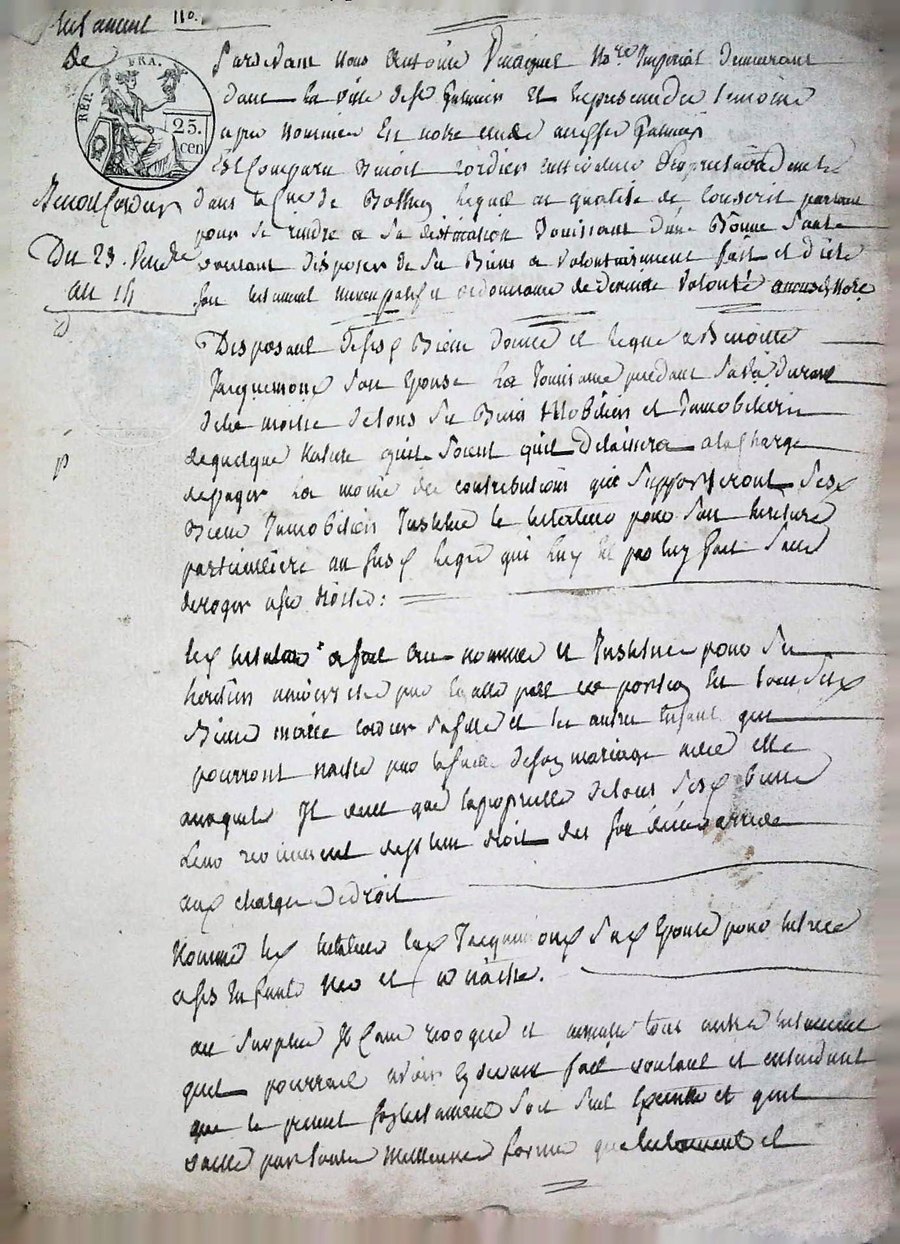 Testament 110.
de
REP. FRA.
25.
cen
Benoit Cordier
Du 23. Vend.re
an 14
Pardevant Nous Antoine No.re Imperial Demeurant
Dans la ville de St Galmier Et En presence des temoins
apres nommés En notre etude audit St Galmier
Est Comparu Benoit Cordier Cultivateur Proprietaire demt
dans la Cne de lequel en qualité de Conscrit partant
pour se rendre a sa destination Jouissant d'une Bonne Santé
voulant disposer de ses Biens a volontairement fait et dicté
son testament nuncupatif et ordonnance de derniere Volonté a nous dt Nore
Disposant de ses Biens donne et legue a Benoitte
Jacquemont son Epouse La Jouissance pendant sa vie durant
de la moitié de tous ses Biens Mobiliers et Immobiliers
de quelque Nature qu'ils soient qu'il Delaissera a la Charge
de payer La moitié des contributions que supporteront ses
Biens Immobiliers Institue le testateur pour son heritiere
particulliere au susd legs qui luy est par luy fait sans
deroger a ses droits :
Led testateur a fait Cree nommée et Institue pour ses
heritiers universels par egalle part et portion En tous ses
Biens Marie Cordier sa fille et les autres Enfants qui
pourront naitre par la suite de son mariage avec elle
auxquels Il veut que la proprietté de tous ses Biens
Leur reviennent de plein droit des son décès arrivé
aux charges de droit
Nomme led testateur lad Jacquemont sad Epouse pour tutrice
a ses Enfants Nés et a naitre.
au surplus Il Casse revoque et annulle tous autres testaments
quil pourrait avoir cy devant fait voulant et entendant
que le present son testament soit seul Executé et quil
vaille par toute Meilleure forme que testament et